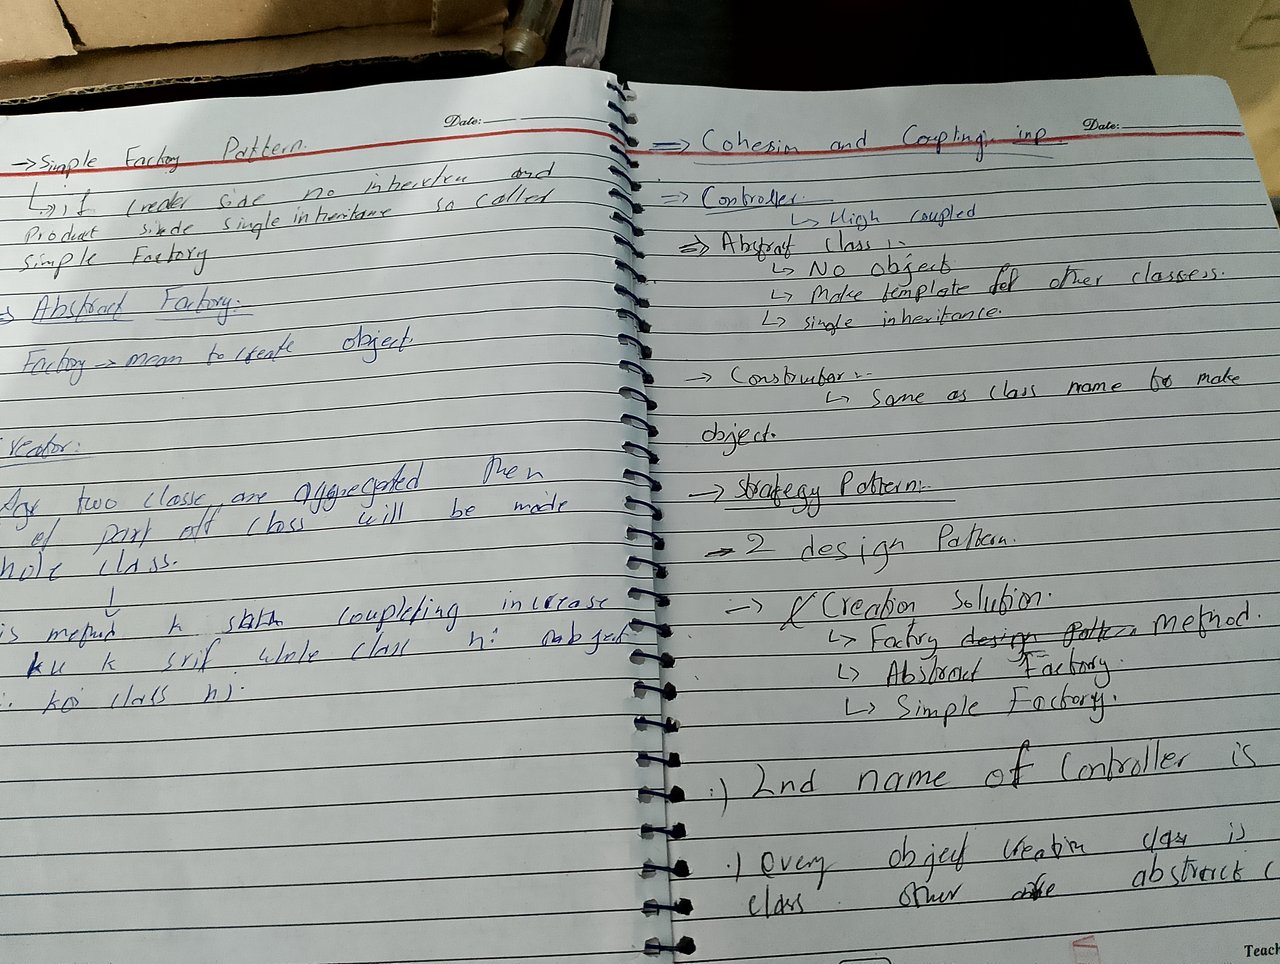 Date:
→ Simple Factory Pattern.
↳ if creater side no inheritence and
Product siede single inheritance so called
simple Factory
⇒ Abstract Factory:
Factory → mean to create object.
reator:
Age two classe are aggregated then
of part off class will be made
hole class.
↓
is method k coupleting increase
ku k srif whole class hi oobject
koi class hi.
Date:
⇒ Cohesion and Coupling: inp
⇒ Controller:
↳ High coupled
⇒ Abstract class:-
↳ No object
↳ Make template for other classess.
↳ single inheritance.
→ Constructor:-
↳ same as class name to make
object.
→ strategy Pattern:-
→ 2 design Pattern.
→ Creation solution.
↳ Factry design method.
↳ Abstract Factory.
↳ Simple Factory.
:) 2nd name of controller is
.) every object creation class is
class other abstract c
Teach